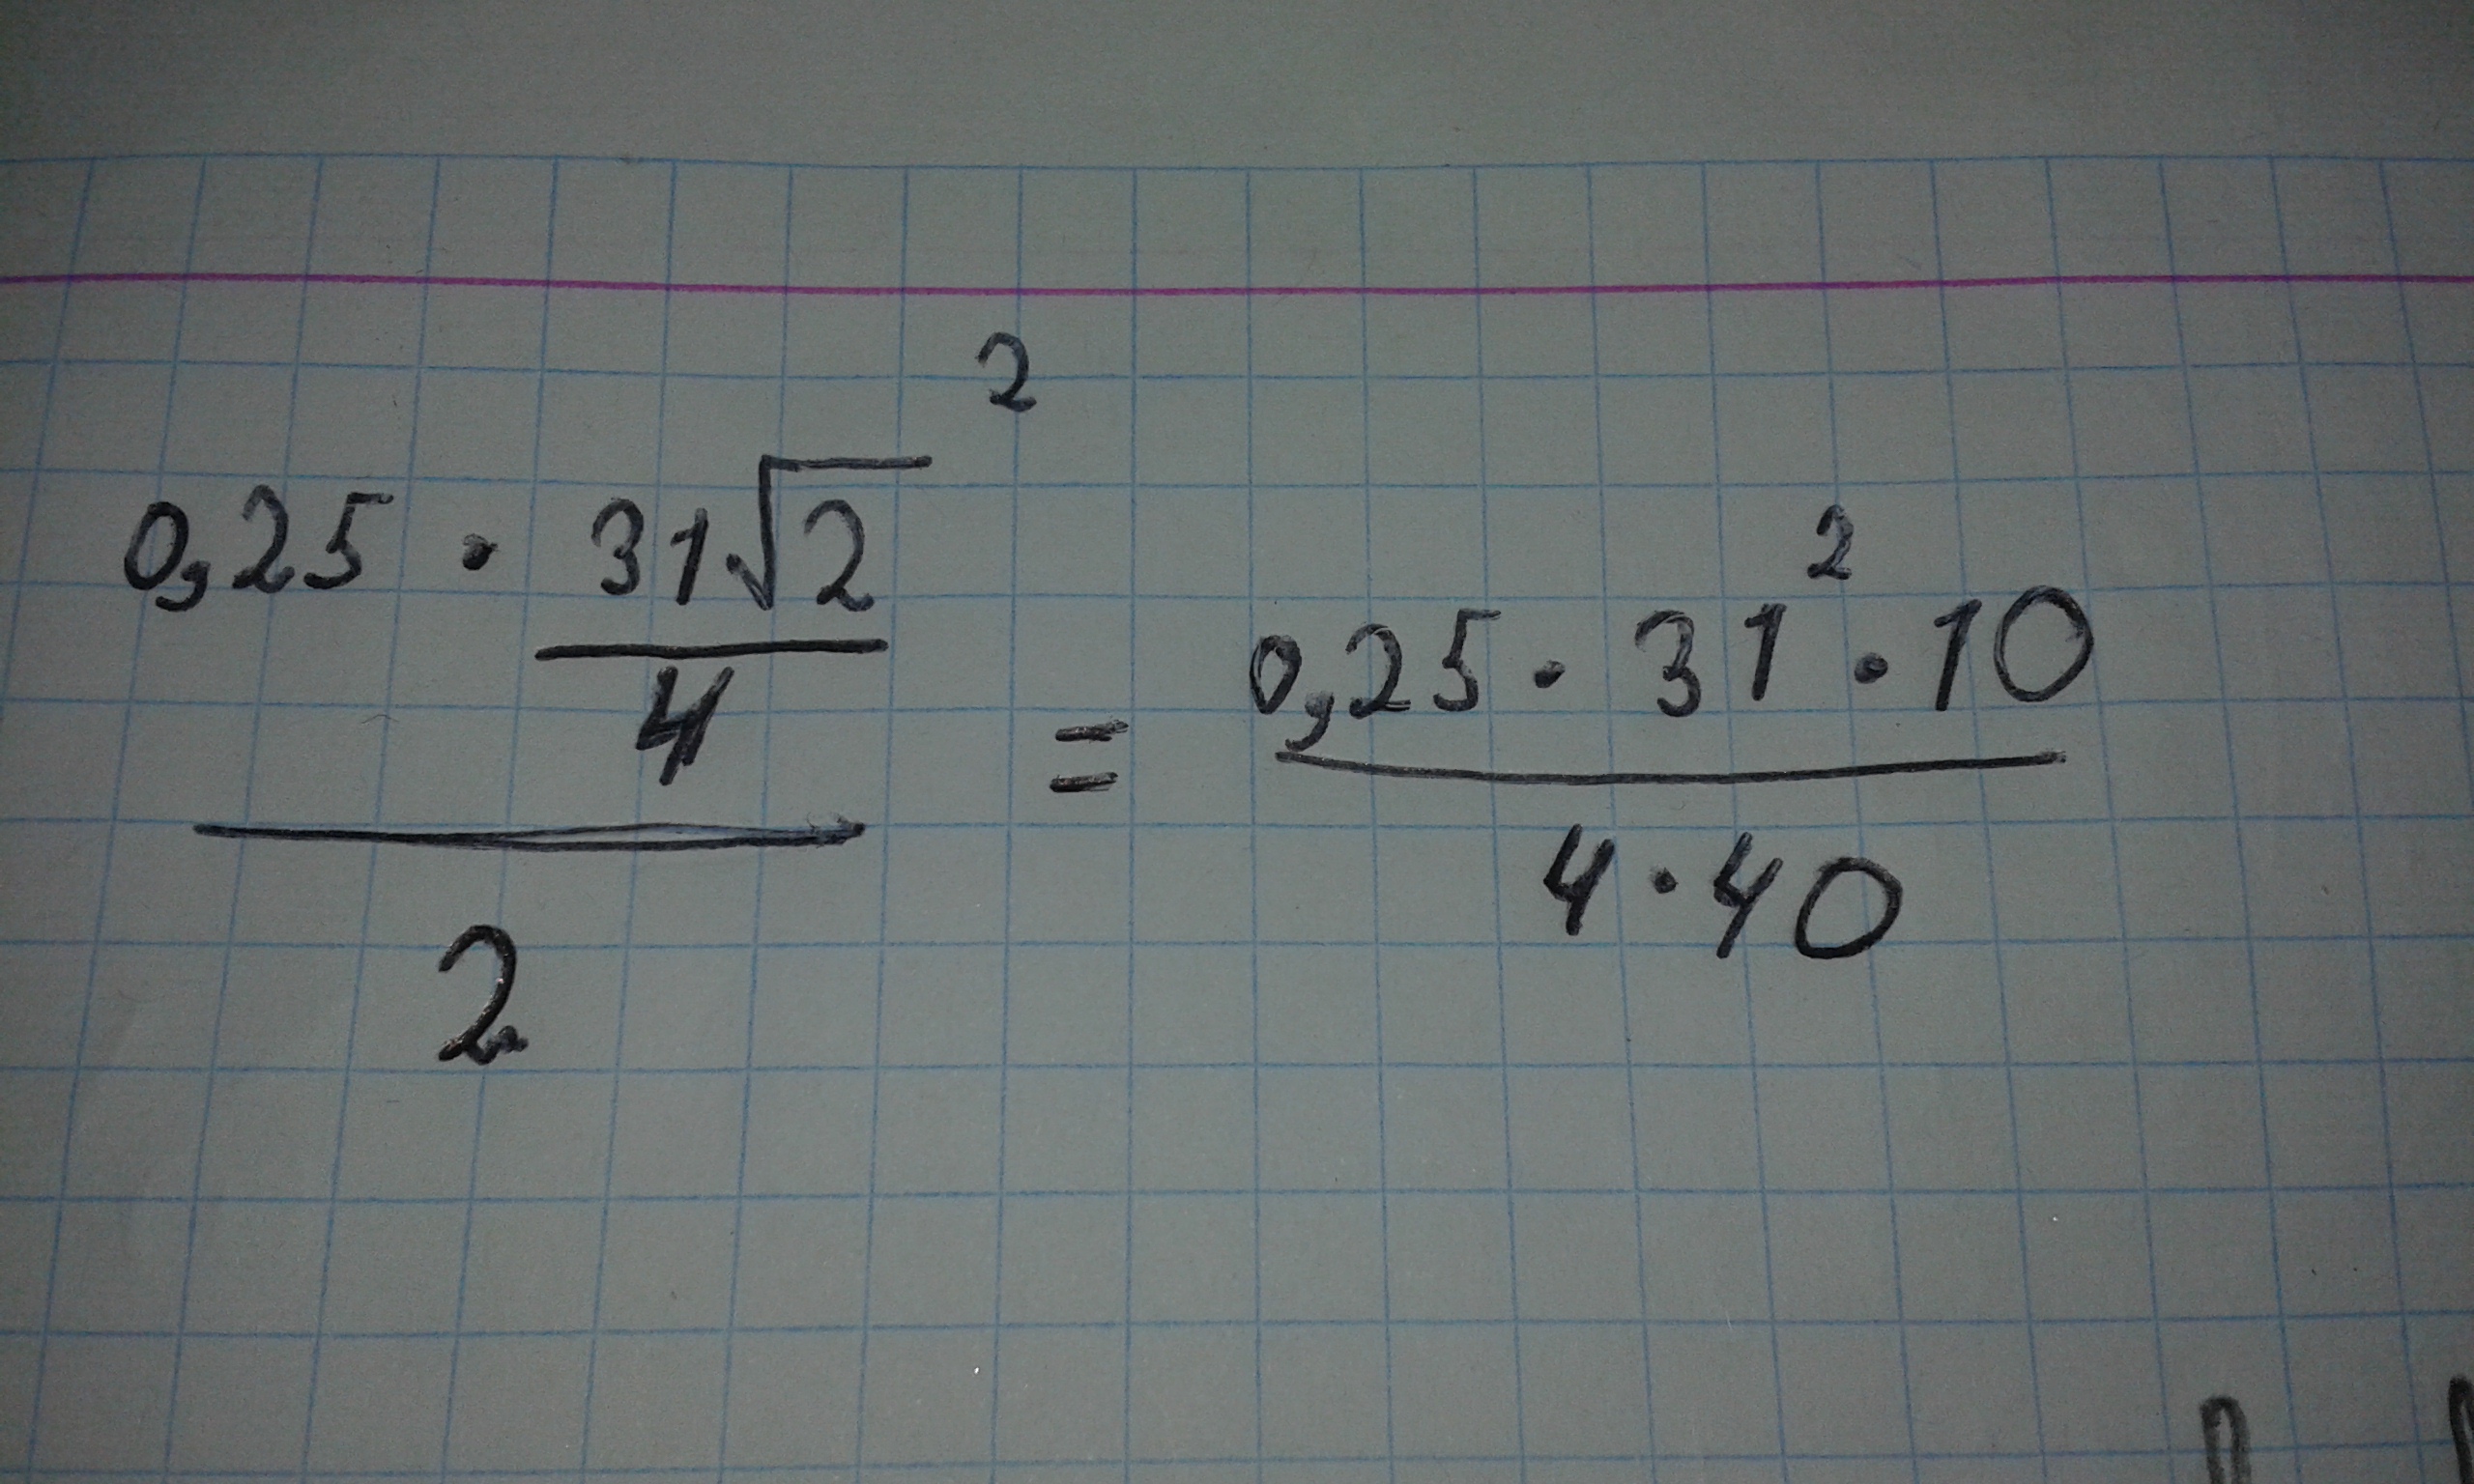 2
0,25 · 31√2 / 4
/ 2
=
0,25 · 31² · 10
/ 4 · 40